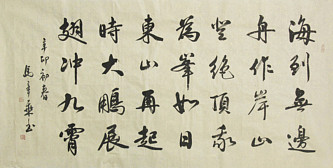 海到無邊
舟作岸山
登絕頂我
為峯如日
東山再起
時大鵬展
翅冲九霄
辛卯初春